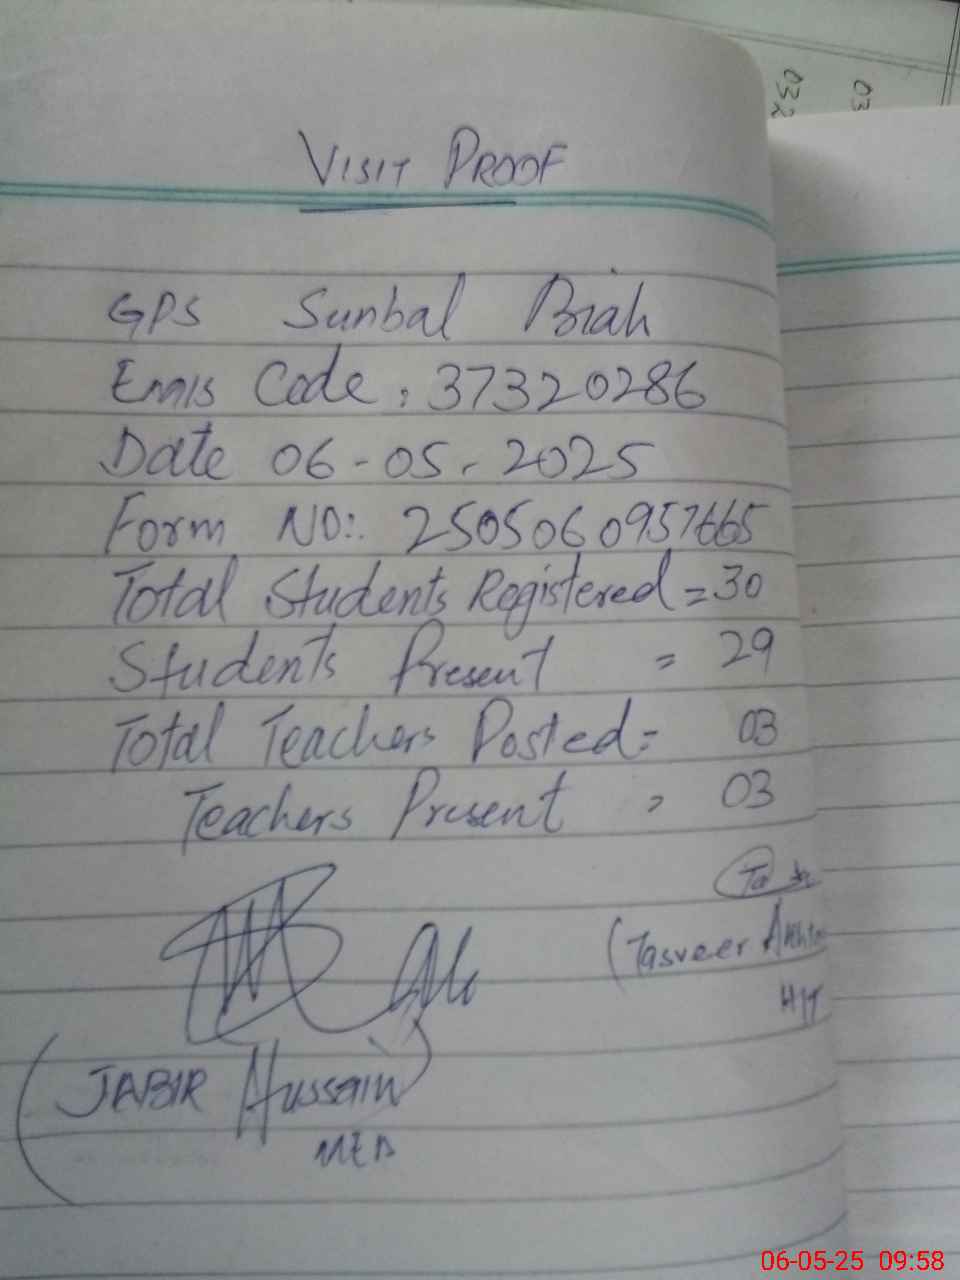 032
03
VISIT PROOF
GPS Sunbal Biah
Emis Code : 37320286
Date 06-05-2025
Form NO:. 2505060957665
Total Students Registered = 30
Students Present = 29
Total Teachers Posted = 03
Teachers Present = 03
(Tasveer Akhtar
H/T
(JABIR Hussain)
MEA
06-05-25 09:58